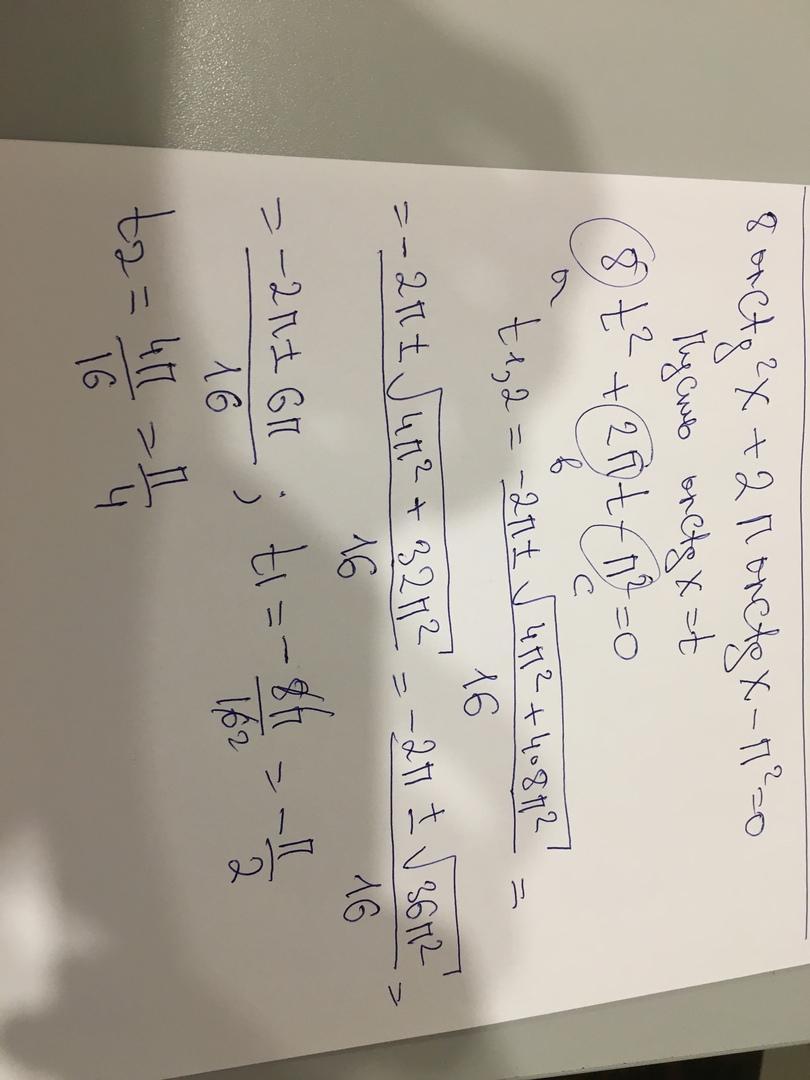 8 arctg²x + 2π arctgx − π² = 0
Пусть arctgx = t
8t² + 2πt − π² = 0
a в c
t₁,₂ = (−2π ± √(4π² + 4·8π²))/16 =
= (−2π ± √(4π² + 32π²))/16 = (−2π ± √(36π²))/16 =
= (−2π ± 6π)/16 ; t₁ = −8π/16₂ = −π/2
t₂ = 4π/16 = π/4